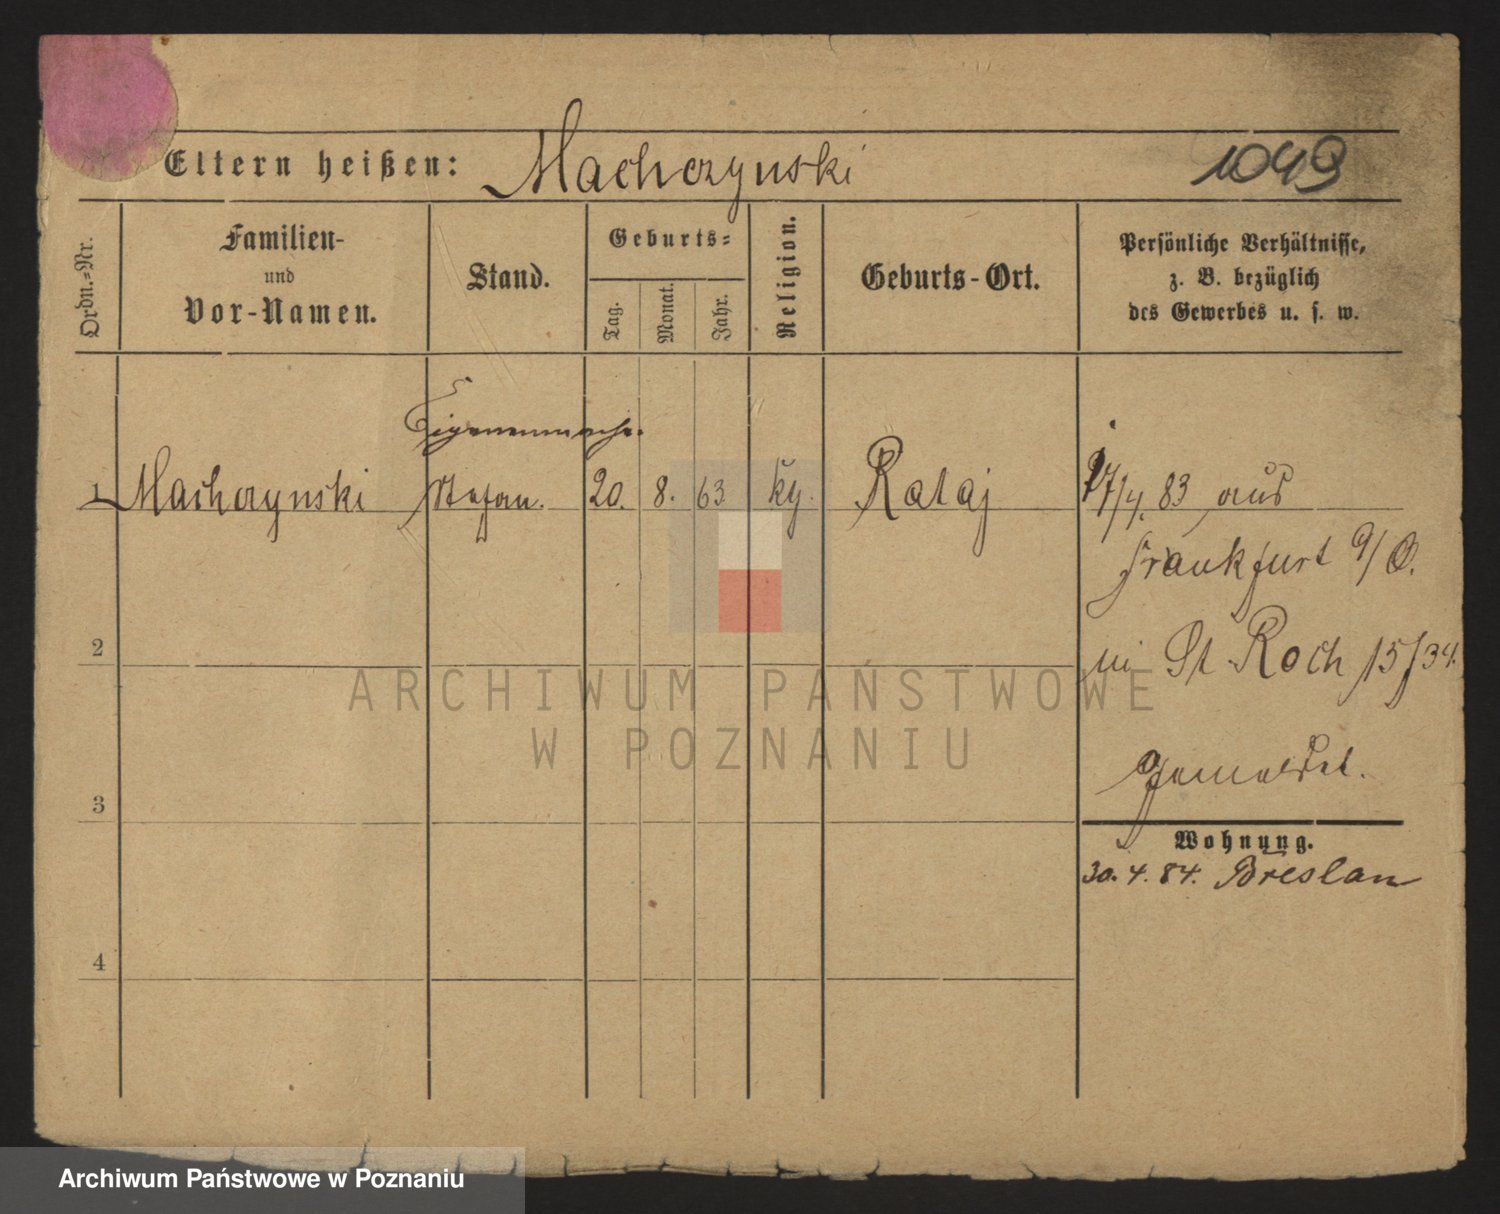 Eltern heißen: Machczynski 1049
Ordn.=Nr.
Familien-
und
Vor-Namen.
Stand.
Geburts=
Tag.
Monat.
Jahr.
Religion.
Geburts-Ort.
Persönliche Verhältnisse,
z. B. bezüglich
des Gewerbes u. s. w.
1 Machczynski Stefan. 20. 8. 63 Rataj
17/4. 83 aus
Frankfurt a/O.
St Roch 15/34.
gemeldet.
2
3
4
Wohnung.
30. 4. 84. Breslau
ARCHIWUM PAŃSTWOWE
W POZNANIU
Archiwum Państwowe w Poznaniu